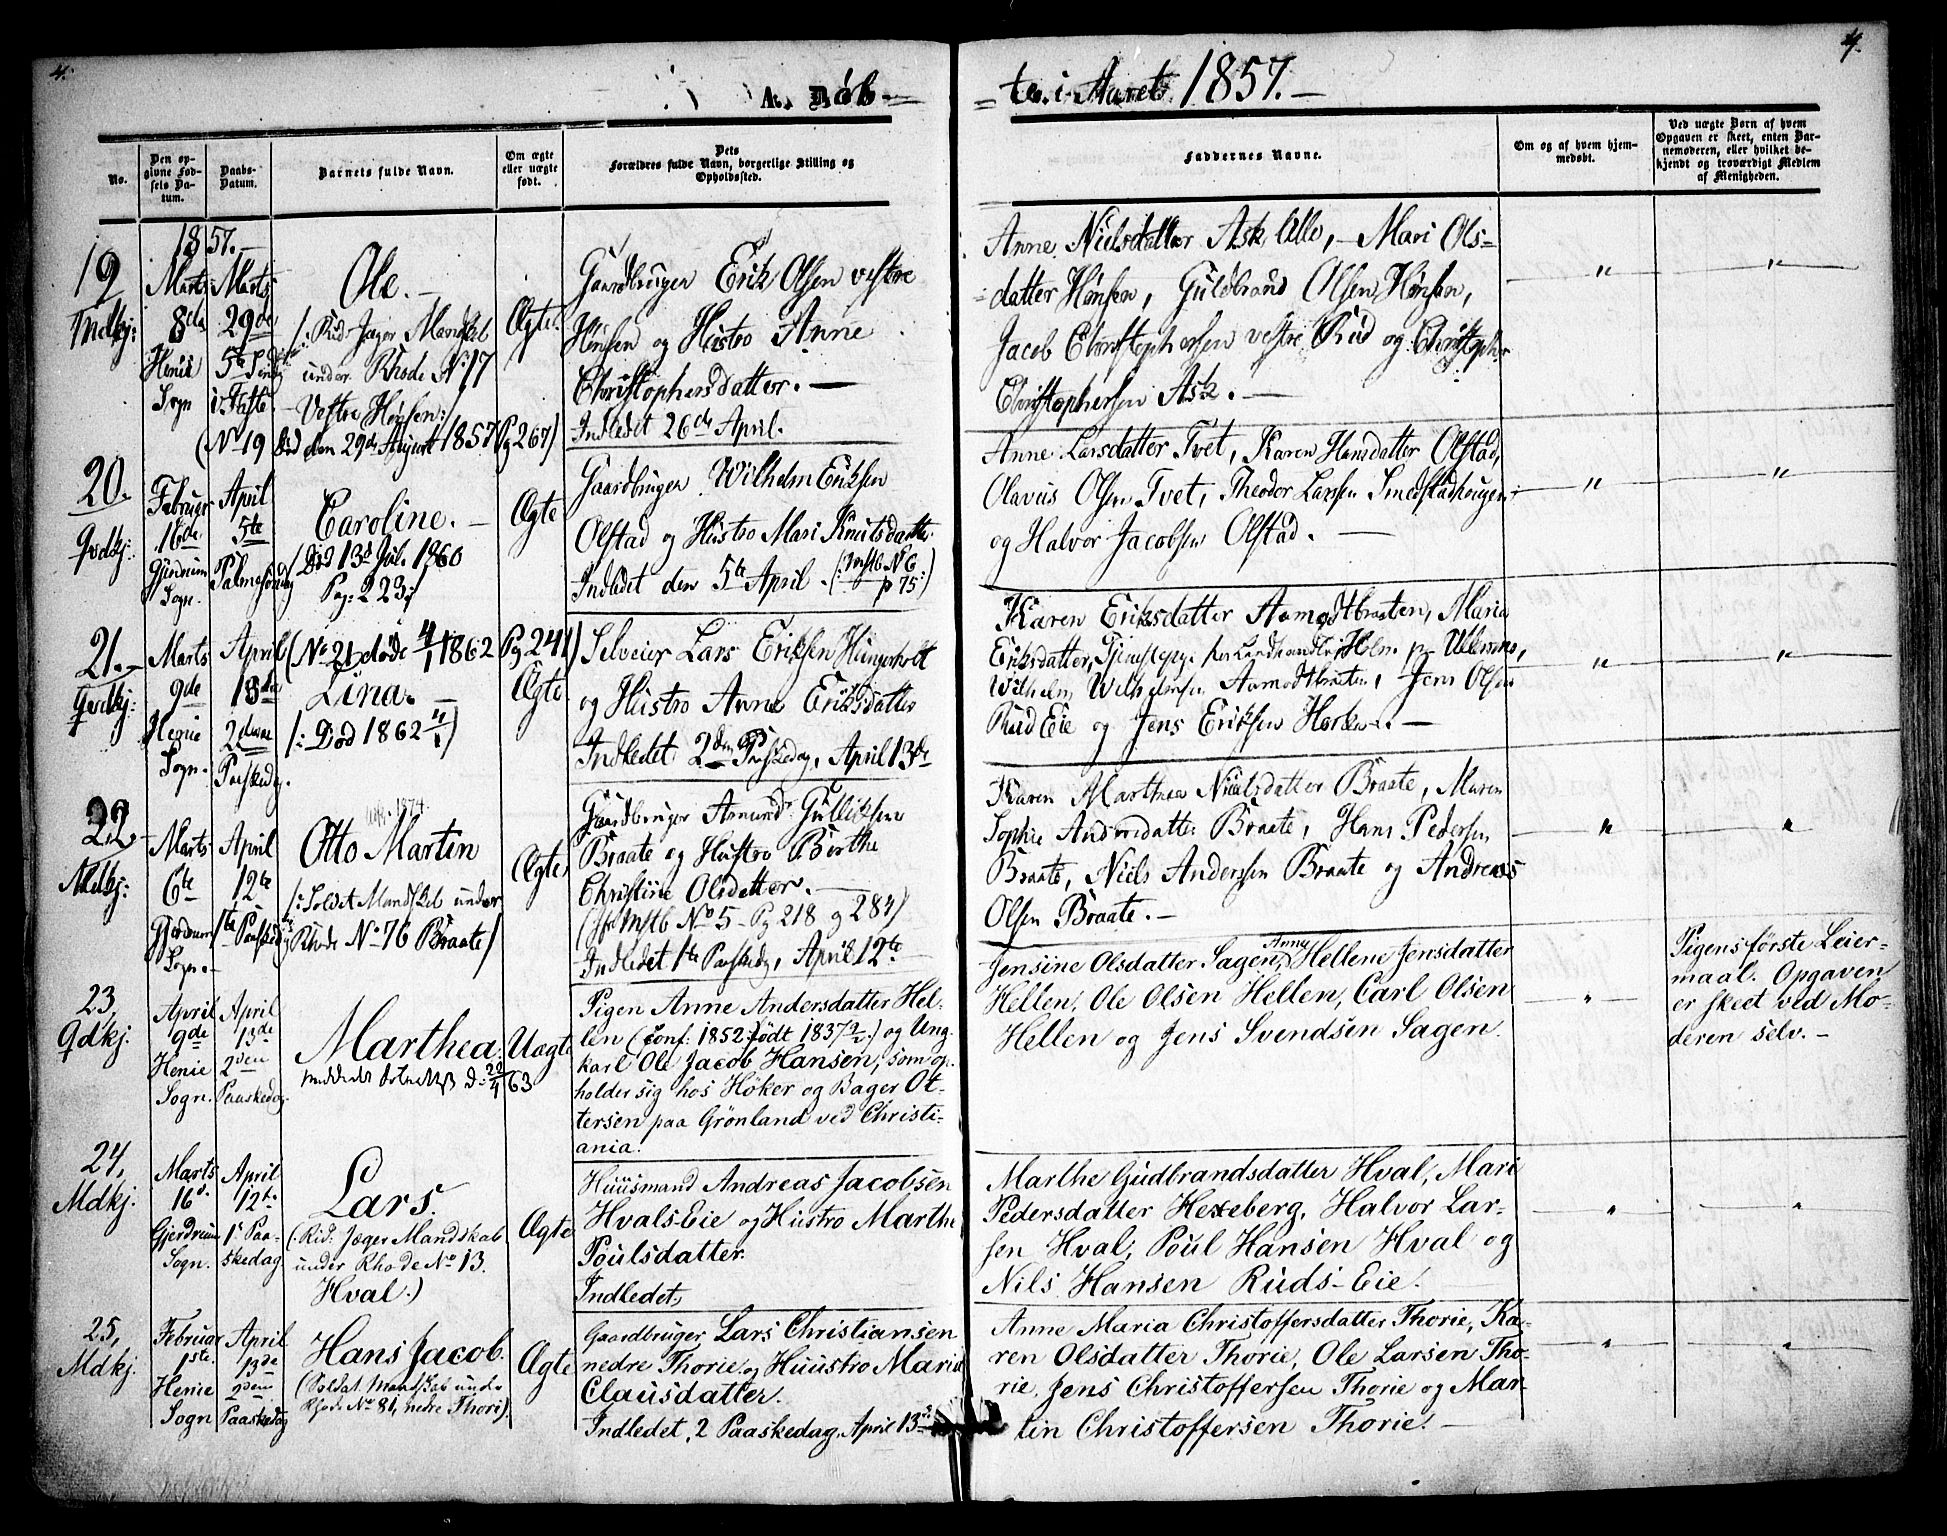 4.
4.
A. Døb-
te i Aaret 1857.-
No.
Den op-
givne Fød-
sels Da-
tum.
Daabs-
Datum.
Barnets fulde Navn.
Om ægte
eller uægte
født.
Dets
Forældres fulde Navn, borgerlige Stilling og
Opholdssted.
Faddernes Navne.
Om og af hvem hjem-
medøbt.
Ved uægte Børn af hvem
Opgaven er skeet, enten Bar-
nemoderen, eller hvilket be-
kjendt og troværdigt Medlem
af Menigheden.
1857.-
19
Marts
8de
Henie
Sogn
Marts
29de
5te
i Faste.
Ole.-
/: Rid. Jæger Mandskab
under Rhode No 17
Vestre Hønsen:/
(No 19 Død den 29de August 1857 Pg 267)
Ægte.
Gaardbruger Erik Olsen vestre
Hønsen og Hustro Anne
Christophersdatter.-
Indledet 26de April.
Anne Nielsdatter Ask lille, - Mari Ols-
datter Hønsen, Guldbrand Olsen Hønsen,
Jacob Christophersen vestre Rud og Christopher
Christophersen Ask.-
"
"
20.
Februar
16de
Gjerdrum
Sogn.
April
5te
Palmesøndag
Caroline.-
/Død 13d Jul. 1860
Pag: 223:/
Ægte
Gaardbruger Wilhelm Eriksen
Olstad og Hustro Mari Knutsdatter
Indledet den 5te April. (: Mstb No 6
p 75:)
Anne Larsdatter Tvet, Karen Hansdatter Olstad,
Olavus Olsen Tvet, Theodor Larsen Smedstadhougen
og Halvor Jacobsen Olstad.-
"
"
21.-
Marts
9de
Henie
Sogn.
April
13de
2den
Paaskedag.
(No 21 døde 4/1 1862 Pg 241)
Lina.-
/: Død 1862 4/1)
Ægte
Selveier Lars Eriksen Hungerholt
og Hustro Anne Eriksdatter
Indledet 2den Paaskedag, April 13de
Karen Eriksdatter Aamodtbraaten, Maria
Eriksdatter, Tjenestepige hos Landhandler Holm p Ullern,
Wilhelm Wilhelmsen Aamodtbraaten, Jens Olsen
Rud Eie og Jens Eriksen Horken.-
"
"
22-
Mdkj:
Marts
6te
Gjerdrum
Sogn.-
April
12te
1te Paaskedag
1874.
Otto Martin
/: Soldat Mandskab under
Rhode No 76 Braate/
Ægte
Gaardbruger Amund Gulliksen
Braate og Hustro Birthe
Christine Olsdatter.-
(Mstb No 5 - Pg 218 og 284)
Indledet 1te Paaskedag, April 12te
Karen Marthea Nielsdatter Braate, Maren
Sophie Andersdatter Braate, Hans Pedersen
Braate, Niels Anderssen Braate og Andreas
Olsen Braate.-
"
"
23,
Qdkj.
April
9de
Henie
Sogn.
April
13de
2den
Paaskedag.
Marthea.
d: 20/4 63
Uægte
Pigen Anne Andersdatter Hel-
len (Conf: 1852: født 1837 9/2.) og Ung-
karl Ole Jacob Hansen, som op-
holder sig hos Høker og Bager Ot-
tersen paa Grønland ved Christi-
ania.
Jensine Olsdatter Sagen, Anne Hellene Jensdatter
Hellen, Ole Olsen Hellen, Carl Olsen
Hellen og Jens Svendsen Sagen.
"
Pigens første Leier-
maal. Opgaven
er skeet ved Mo-
deren selv.-
24,
Mdkj.
Marts
16d.
Gjerdrum
Sogn.
April
12te
1' Paa-
skedag
Lars.
(: Rid: Jæger Mandskab
under Rhode No 13.
Hval.)
Ægte
Huusmand Andreas Jacobsen
Hvals-Eie og Hustro Marthe
Poulsdatter.
Indledet,
Marthe Gudbrandsdatter Hval, Mari
Pedersdatter Hexeberg, Halvor Lar-
sen Hval, Poul Hansen Hval og
Nils Hansen Ruds-Eie.
"
"
25,
Mdkj.
Februar
1ste.
Henie
Sogn
April
13de
2den
Paaskedag
Hans Jacob.
(Soldat Mandskab under
Rhode No 81, nedre Thori).
Ægte
Gaardbruger Lars Christiansen
nedre Thorie og Huustro Maria
Clausdatter.
Indledet, 2 Paaskedag, April 13de
Anne Maria Christoffersdatter Thorie, Ka-
ren Olsdatter Thorie, Ole Larsen Tho-
rie, Jens Christoffersen Thorie og Mar-
tin Christoffersen Thorie.-
"
"